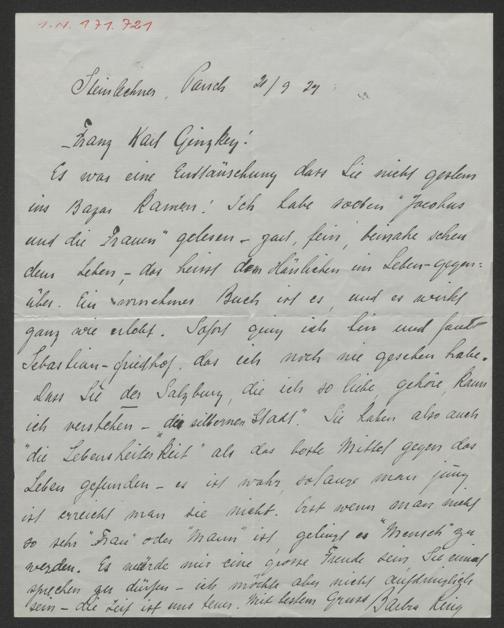 I.N. 171.721
Steinlechner, Parsch 21/9 29
Franz Karl Ginzkey!
Es war eine Enttäuschung dass Sie nicht gestern
ins Bazar kamen! Ich habe soeben "Jacobus
und die Frauen" gelesen - zart, fein, beinahe scheu
dem Leben, - das heisst dem Hässlichen im Leben - gegen=
über. Ein vornehmes Buch ist es, und es wirkt
ganz wie erlebt. Sofort ging ich hin und fand
Sebastian-friedhof, das ich noch nie gesehen habe.
Dass Sie der Salzburg, die ich so liebe, gehöre, kann
ich verstehen - die silbernen Stadt". Sie haben also auch
"die Lebensheiterkeit" als das beste Mittel gegen das
Leben gefunden - es ist wahr, solange man jung
ist erreicht man sie nicht. Erst wenn man nicht
so sehr "Frau" oder "Mann" ist, gelingt es "Mensch" zu
werden. Es würde mir eine grosse Freude sein, Sie einmal
sprechen zu dürfen - ich möchte aber nicht aufdringlich
sein - die Zeit ist uns teuer. Mit bestem Gruss